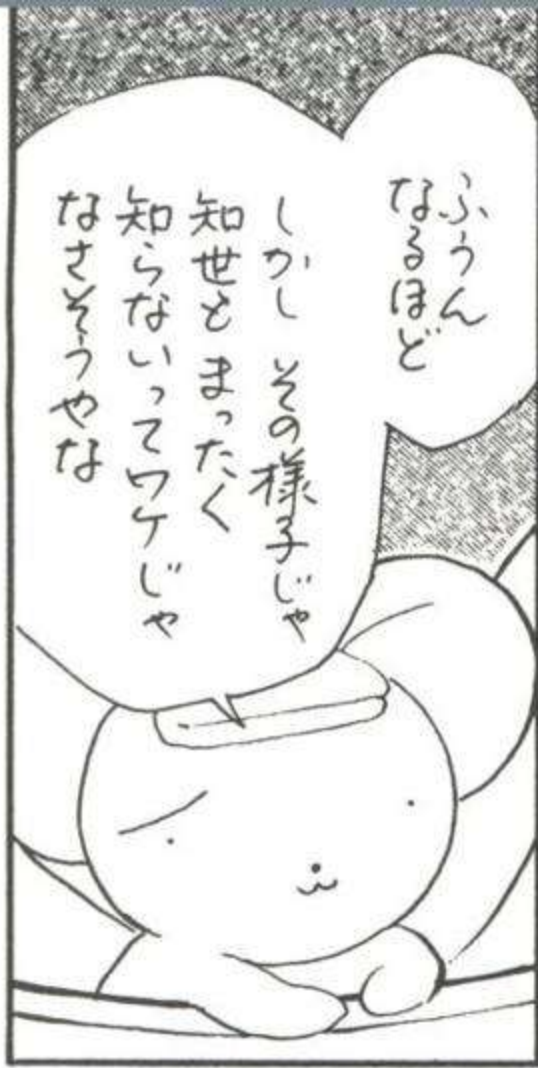 ふうん
なるほど
しかし その様子じゃ
知世と まったく
知らないってワケじゃ
なさそうやな